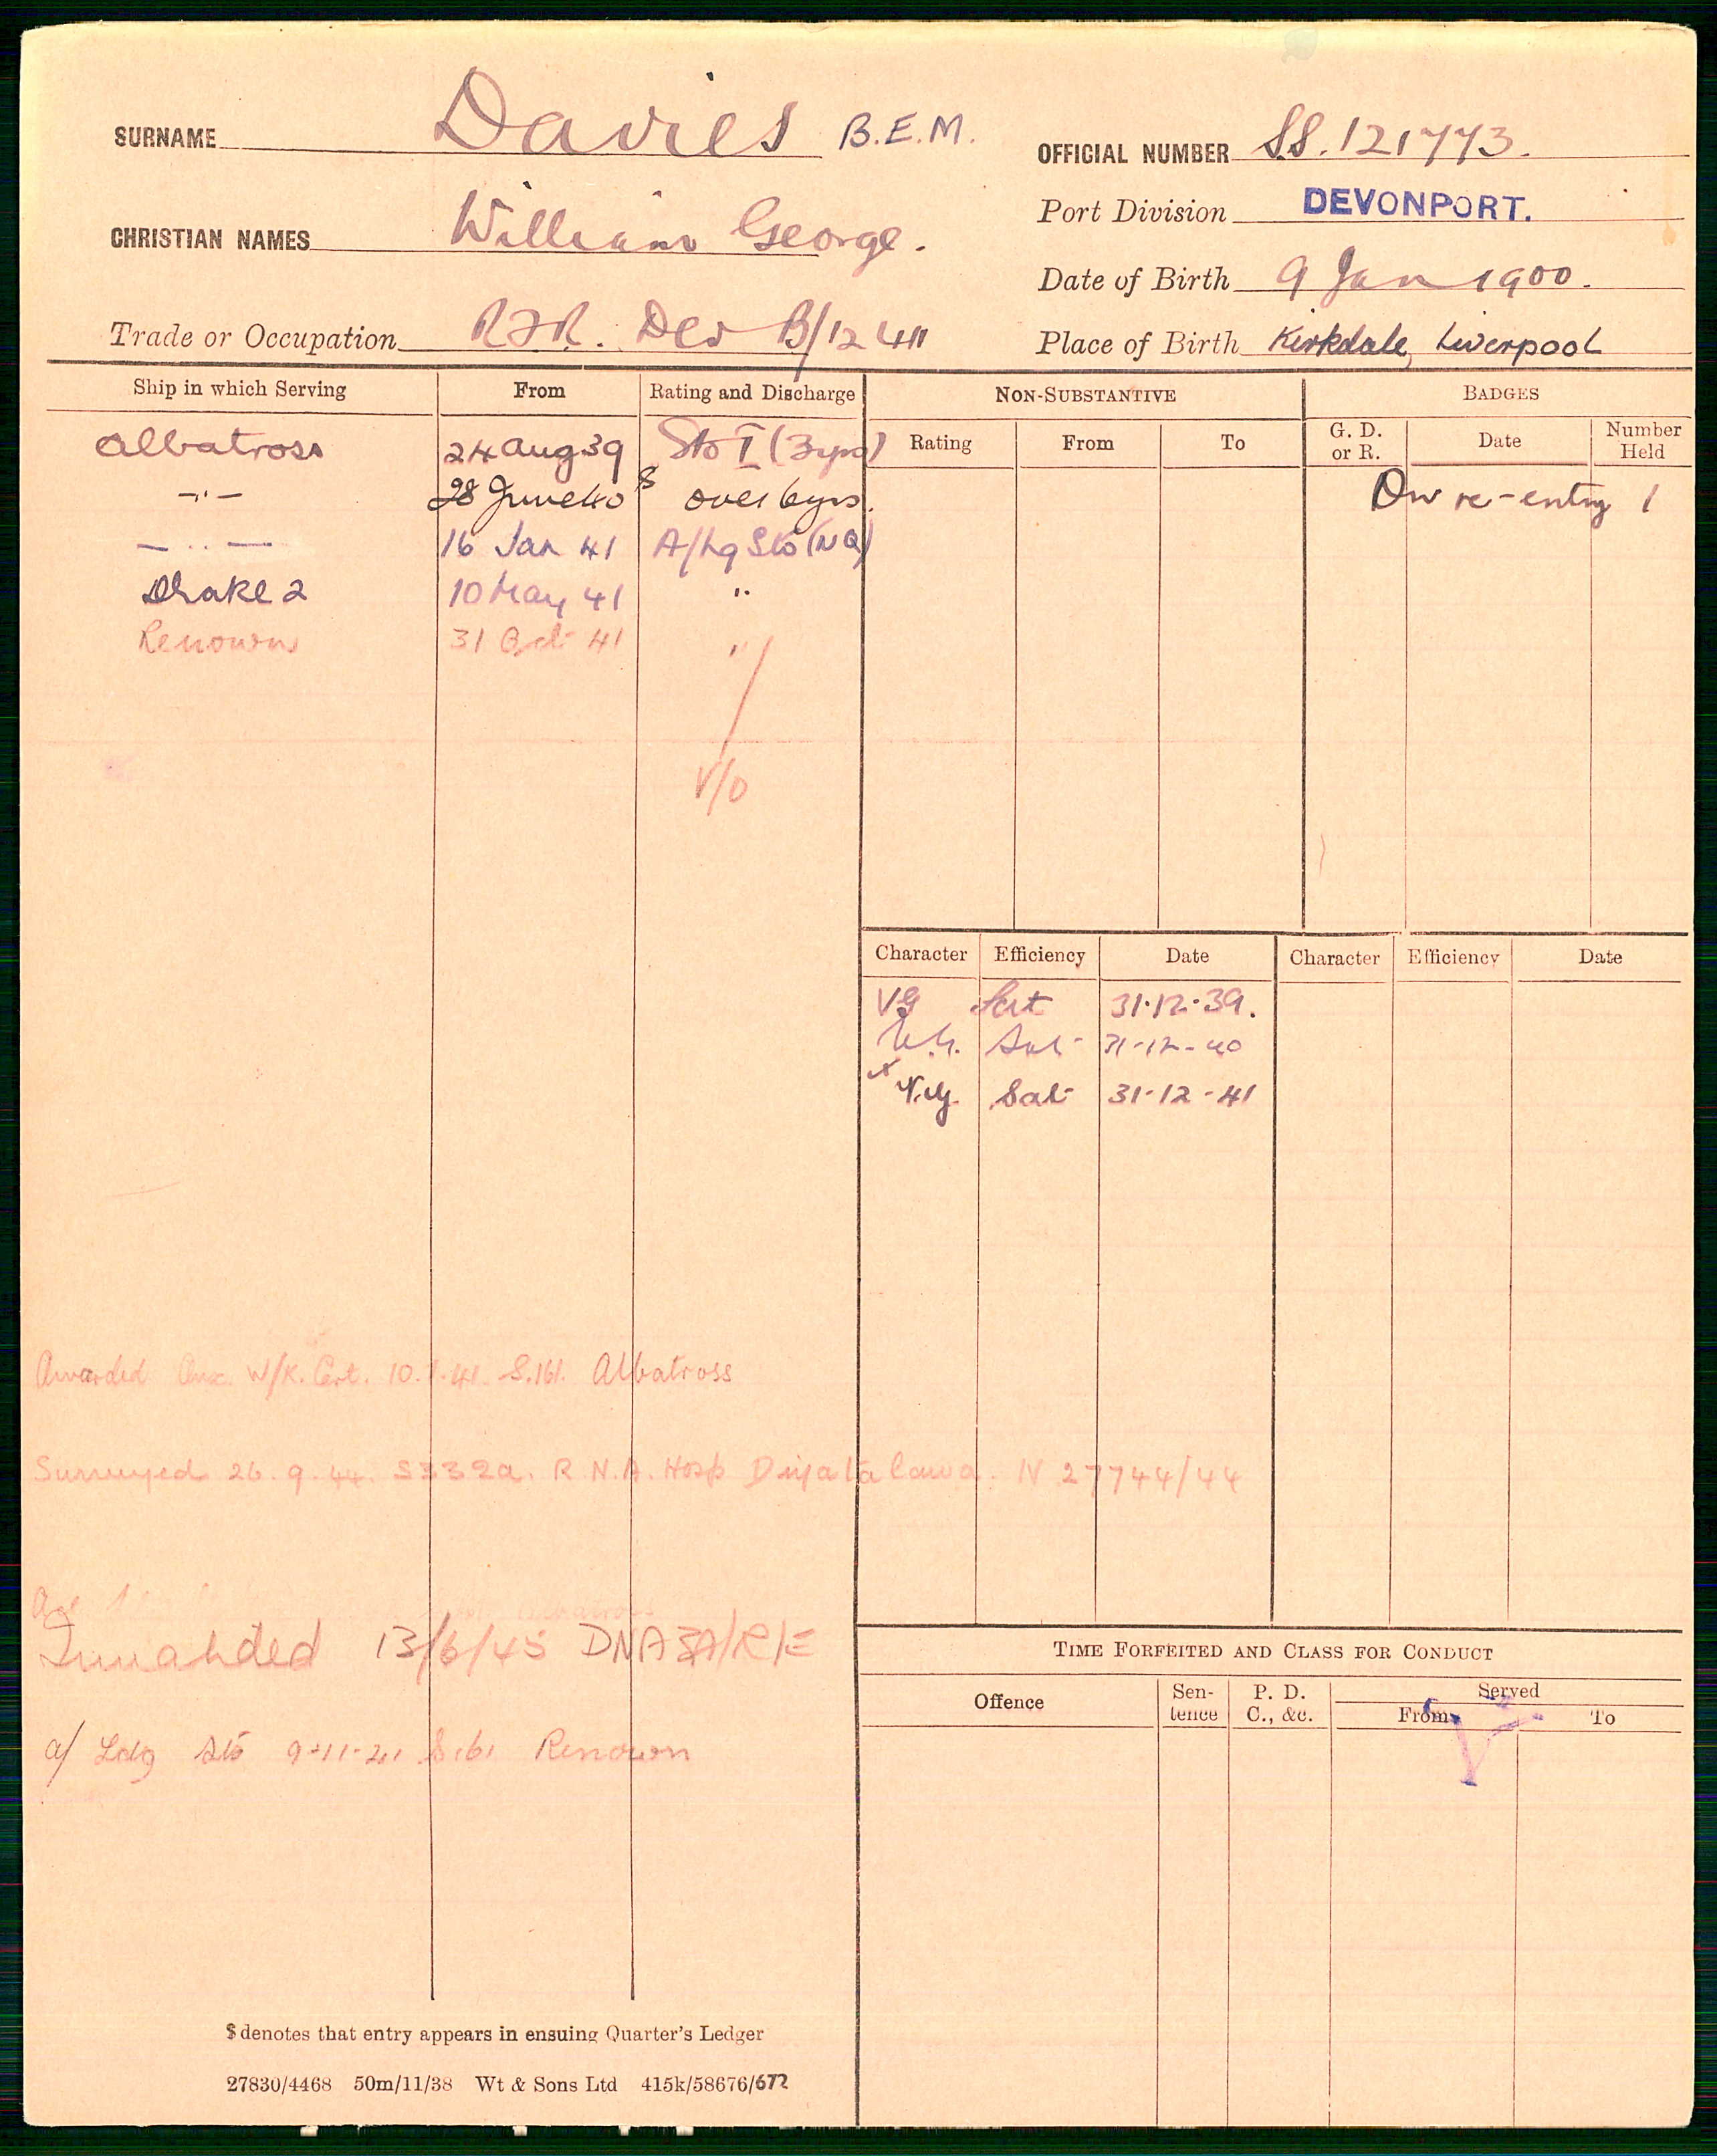 SURNAME Davies B.E.M.
OFFICIAL NUMBER SS.121773.
Port Division DEVONPORT.
CHRISTIAN NAMES William George.
Date of Birth 9 Jan 1900.
Trade or Occupation R.F.R. Dev B/12411
Place of Birth Kirkdale, Liverpool
Ship in which Serving From Rating and Discharge NON-SUBSTANTIVE BADGES
Rating From To G. D. or R. Date Number Held
Albatross 24 Aug 39 Sto I (3yrs)
-"- 28 June 40 $ over 6yrs.
On re-entry 1
- .. - 16 Jan 41 A/Lg Sto (NQ)
Drake 2 10 May 41 "
Renown 31 Oct 41 "
V/O
Character Efficiency Date Character Efficiency Date
VG Sat 31.12.39.
V.G. Sat 31-12-40
x V.G. Sat 31-12-41
Awarded Aux. W/K. Cert. 10.1.41. S.161. Albatross
Surveyed 26.9.44. S332a. R.N.A. Hosp Diyatalawa. N 27744/44
Invalided 13/6/45 DNA 3A/R/E
a/ Ldg Sto 9-11-41 S161 Renown
TIME FORFEITED AND CLASS FOR CONDUCT
Offence Sentence P. D. C., &c. Served
From To
$ denotes that entry appears in ensuing Quarter's Ledger
27830/4468 50m/11/38 Wt & Sons Ltd 415k/58676/672